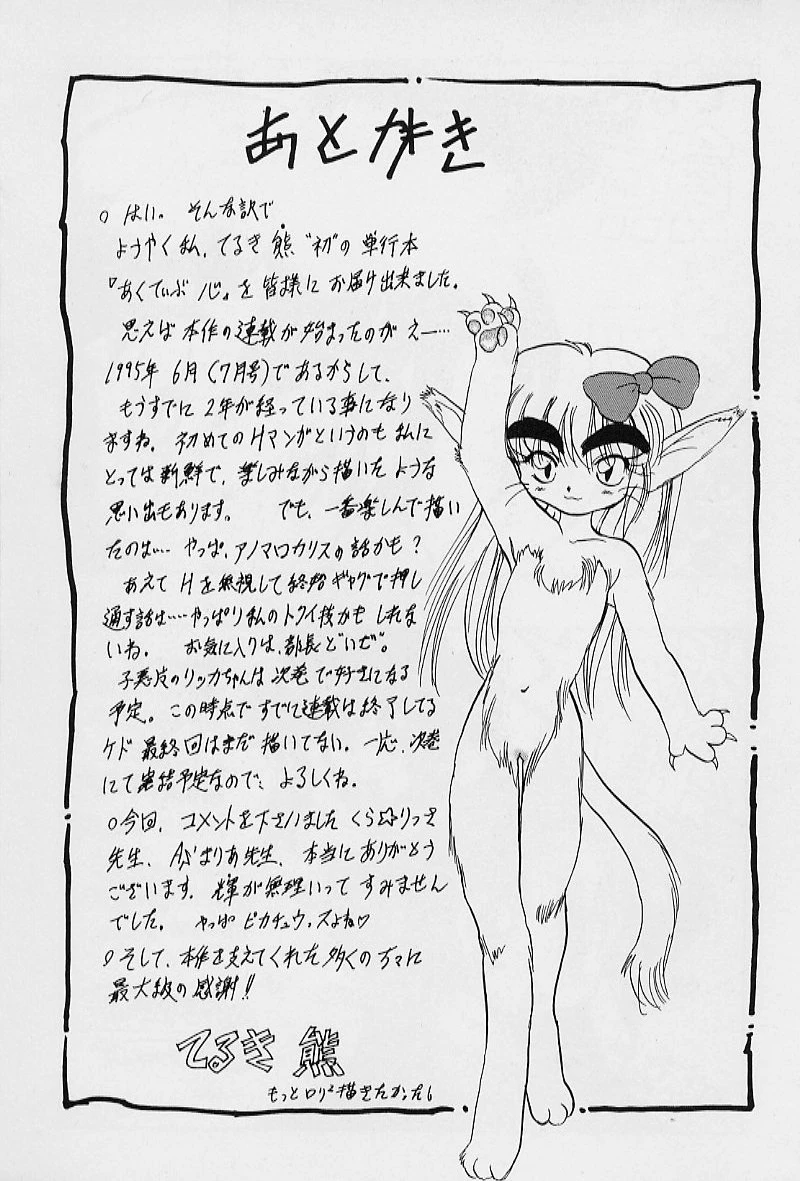 あとがき
○はい。そんな訳で
ようやく私、てるき熊"初"の単行本
『あくてぃぶ心』を皆様にお届け出来ました。
思えば本作の連載が始まったのがえー…
1995年6月(7月号)であるからして、
もうすでに2年が経っている事になり
ますね。初めてのHマンガというのも私に
とっては新鮮で、楽しみながら描いたような
思い出もあります。でも、一番楽しんで描い
たのは…やっぱ、アノマロカリスの話かも?
あえてHを無視して終始ギャグで押し
通す話は……やっぱり私のトクイ技かもしれな
いね。お気に入りは、部長どいぜ。
子悪魔のリッカちゃんは次巻で好きになる
予定。この時点ですでに連載は終了してる
ケド最終回はまだ描いてない。一応、次巻
にて完結予定なので、よろしくね。
○今回、コメントを下さいましたくら☆りっさ
先生、まりあ先生、本当にありがとう
ございます。輝が無理いってすみません
でした。やっぱピカチュウッスよね♡
○そして、本作を支えてくれた多くの方々に
最大級の感謝!!
てるき熊
もっとロリ²描きたかった